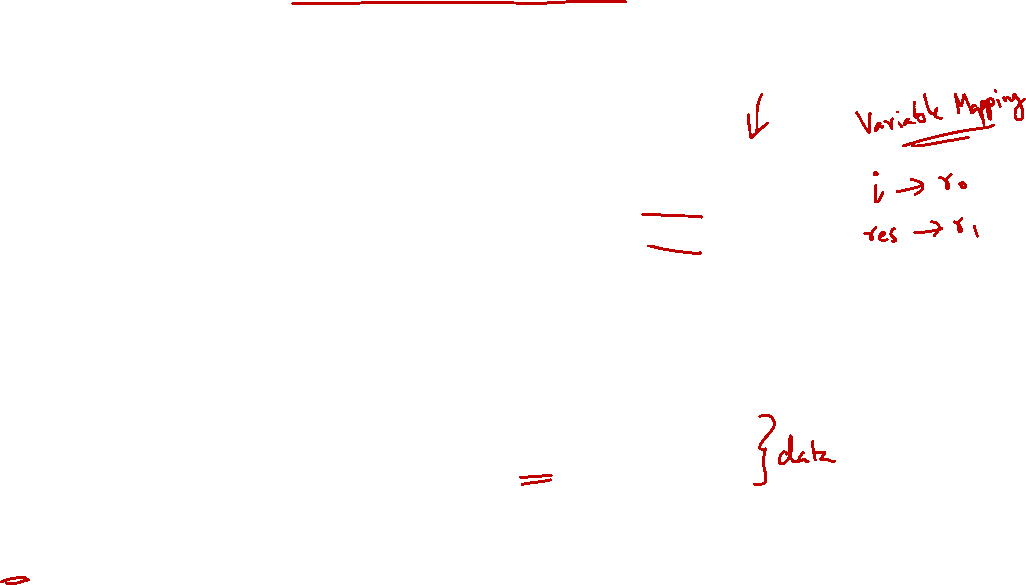 Variable Mapping
i → r0
res → r1
} data